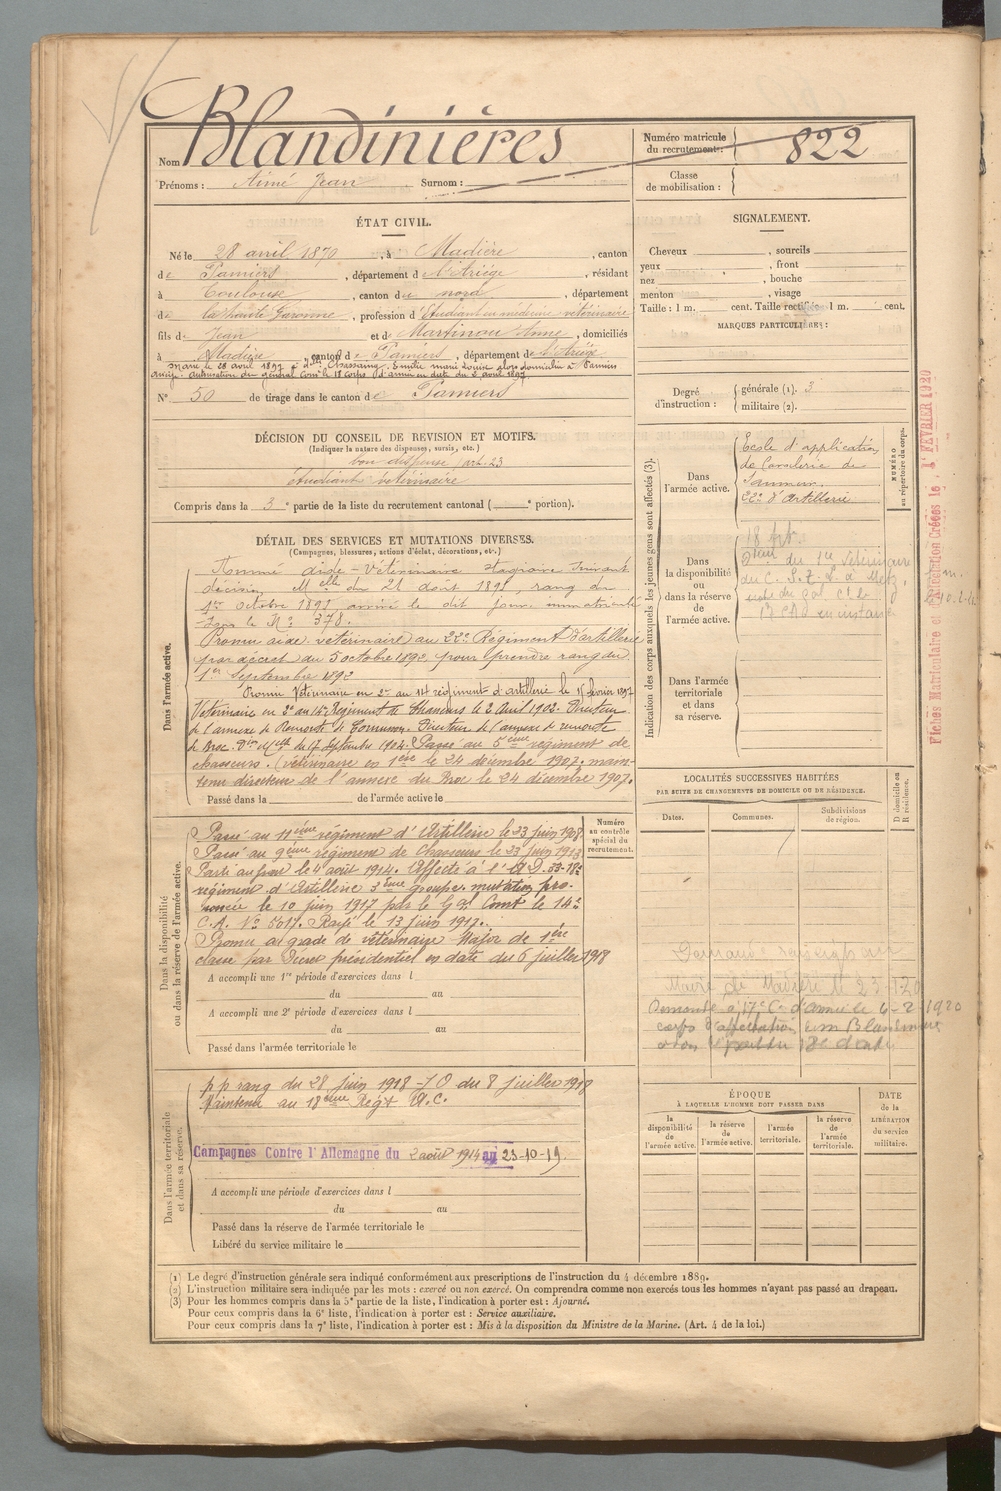 Nom Blandinières
Prénoms : Aimé Jean Surnom :
Numéro matricule du recrutement : 822
Classe de mobilisation :
ÉTAT CIVIL.
Né le 28 avril 1870, à Madière, canton
de Pamiers, département de l'Ariège, résidant
à Toulouse, canton de nord, département
de la haute Garonne, profession d'Étudiant en médecine vétérinaire
fils de Jean et de Martinou Anne, domiciliés
à Madière, canton de Pamiers, département de l'Ariège
Marié le 28 avril 1897 à Dlle Chassaing Emilie marie Louise alors domiciliée à Pamiers
Ariège. Autorisation du général Comt le 18 corps d'armée en date du 5 avril 1897
N° 50 de tirage dans le canton de Pamiers
SIGNALEMENT.
Cheveux , sourcils
yeux , front
nez , bouche
menton , visage
Taille : 1 m. cent. Taille rectifiée : 1 m. cent.
MARQUES PARTICULIÈRES :
Degré d'instruction : générale (1). 3
militaire (2).
DÉCISION DU CONSEIL DE REVISION ET MOTIFS.
(Indiquer la nature des dispenses, sursis, etc.)
bon dispensé art. 23
étudiant vétérinaire
Compris dans la 3e partie de la liste du recrutement cantonal ( e portion).
DÉTAIL DES SERVICES ET MUTATIONS DIVERSES.
(Campagnes, blessures, actions d'éclat, décorations, etc.)
Dans l'armée active.
Nommé aide-Vétérinaire stagiaire suivant
décision Melle du 21 août 1891, rang du
1er Octobre 1891 arrivé le dit jour immatriculé
sous le N° 378.
Promu aide vétérinaire au 22e Régiment d'artillerie
par décret du 5 octobre 1892, pour prendre rang du
1er Septembre 1892
Promu Vétérinaire en 2d au 14e régiment d'artillerie le 15 février 1897
Vétérinaire en 2d au 14e Régiment de Chasseurs le 2 Avril 1902. Directeur
de l'annexe de Remonte de Directeur de l'annexe de remonte
de Broc. Don Melle du 17 Septembre 1904. Passé au 5ème régiment de
chasseurs. (vétérinaire en 1er le 24 décembre 1907. main-
tenu directeur de l'annexe du Broc le 24 décembre 1907.
Passé dans la de l'armée active le
Dans la disponibilité ou dans la réserve de l'armée active.
Numéro au contrôle spécial du recrutement.
Passé au 11ème régiment d'Artillerie le 23 juin 1908.
Passé au 9ème régiment de chasseurs le 23 juin 1913
Parti au front le 4 août 1914. Affecté à l'A D. 33-18e
régiment d'Artillerie 3ème groupe, mutation pro-
noncée le 10 juin 1917 par le Gal Comt le 14e
C.A. N° 5017. Rayé le 13 juin 1917.
Promu au grade de vétérinaire Major de 1ère
classe par Décret présidentiel en date du 6 juillet 1918
A accompli une 1re période d'exercices dans l
du au
A accompli une 2e période d'exercices dans l
du au
Passé dans l'armée territoriale le
Dans l'armée territoriale et dans sa réserve.
p p rang du 28 juin 1918 - J O du 8 juillet 1918
Maintenu au 18ème Regt A.C.
Campagnes Contre l'Allemagne du 2 août 1914 au 23-10-19.
A accompli une période d'exercices dans l
du au
Passé dans la réserve de l'armée territoriale le
Libéré du service militaire le
Indication des corps auxquels les jeunes gens sont affectés (3).
Dans l'armée active.
École d'application
de Cavalerie de
Saumur.
22e d'Artillerie
NUMÉRO au répertoire du corps.
Dans la disponibilité ou dans la réserve de l'armée active.
18 art.
du vétérinaire
du C. de Metz
Dans l'armée territoriale et dans sa réserve.
Fiches Matriculaire et Créées le 1 FÉVRIER 1920
LOCALITÉS SUCCESSIVES HABITÉES
PAR SUITE DE CHANGEMENTS DE DOMICILE OU DE RÉSIDENCE.
Dates. Communes. Subdivisions de région. D domicile ou R résidence.
Maire de Madière le 23-1-20
Demandé à 17e C. d'armée le 6-2-1920
corps d'affectation
ÉPOQUE
À LAQUELLE L'HOMME DOIT PASSER DANS
la disponibilité de l'armée active. la réserve de l'armée active. l'armée territoriale. la réserve de l'armée territoriale.
DATE de la LIBÉRATION du service militaire.
(1) Le degré d'instruction générale sera indiqué conformément aux prescriptions de l'instruction du 4 décembre 1889.
(2) L'instruction militaire sera indiquée par les mots : exercé ou non exercé. On comprendra comme non exercés tous les hommes n'ayant pas passé au drapeau.
(3) Pour les hommes compris dans la 5e partie de la liste, l'indication à porter est : Ajourné.
Pour ceux compris dans la 6e liste, l'indication à porter est : Service auxiliaire.
Pour ceux compris dans la 7e liste, l'indication à porter est : Mis à la disposition du Ministre de la Marine. (Art. 4 de la loi.)